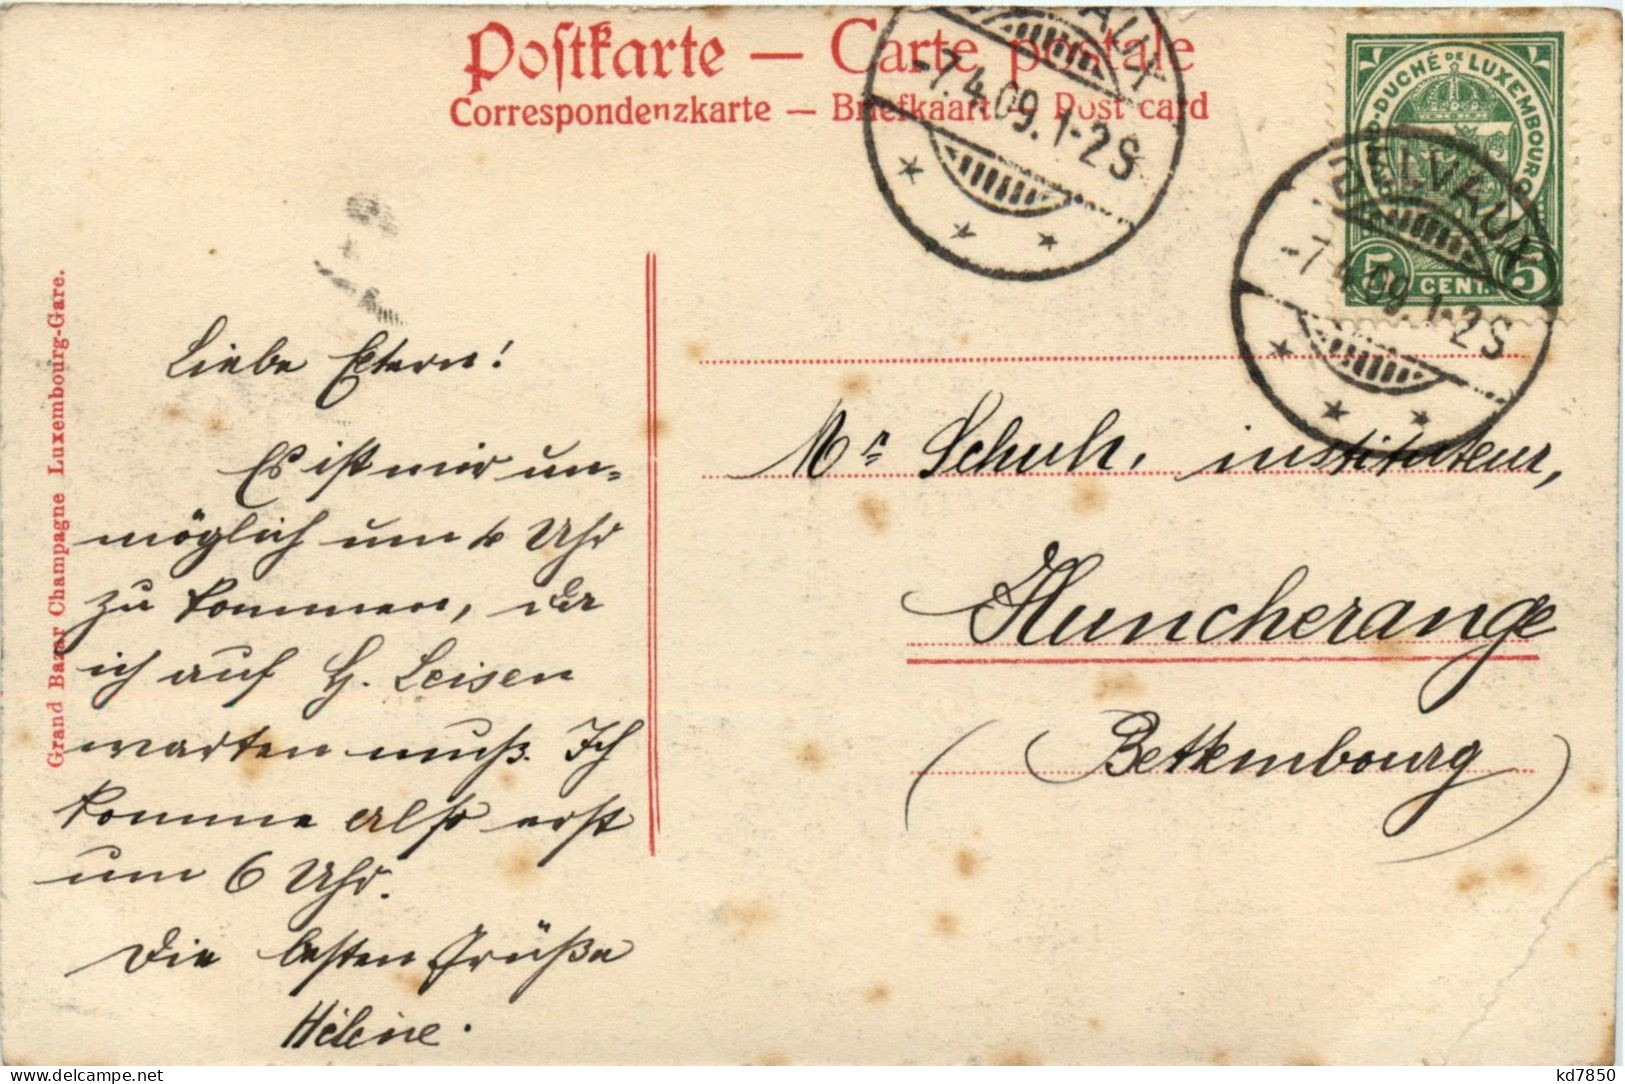 Postkarte — Carte postale
Correspondenzkarte — Briefkaart — Post card
GRAND-DUCHÉ DE LUXEMBOURG
5 CENT. 5
-7.4.09.1-2S
-7.4.09.1-2S
Grand Bazar Champagne Luxembourg-Gare.
Liebe Eltern!
Es ist mir un=
möglich um 4 Uhr
zu kommen, da
ich auf H. Leisen
warten muß. Ich
komme also erst
um 6 Uhr.
Die besten Grüße
Hélène.
Mr Schuh, instituteur,
Huncherange
(Bettembourg)
kd7850